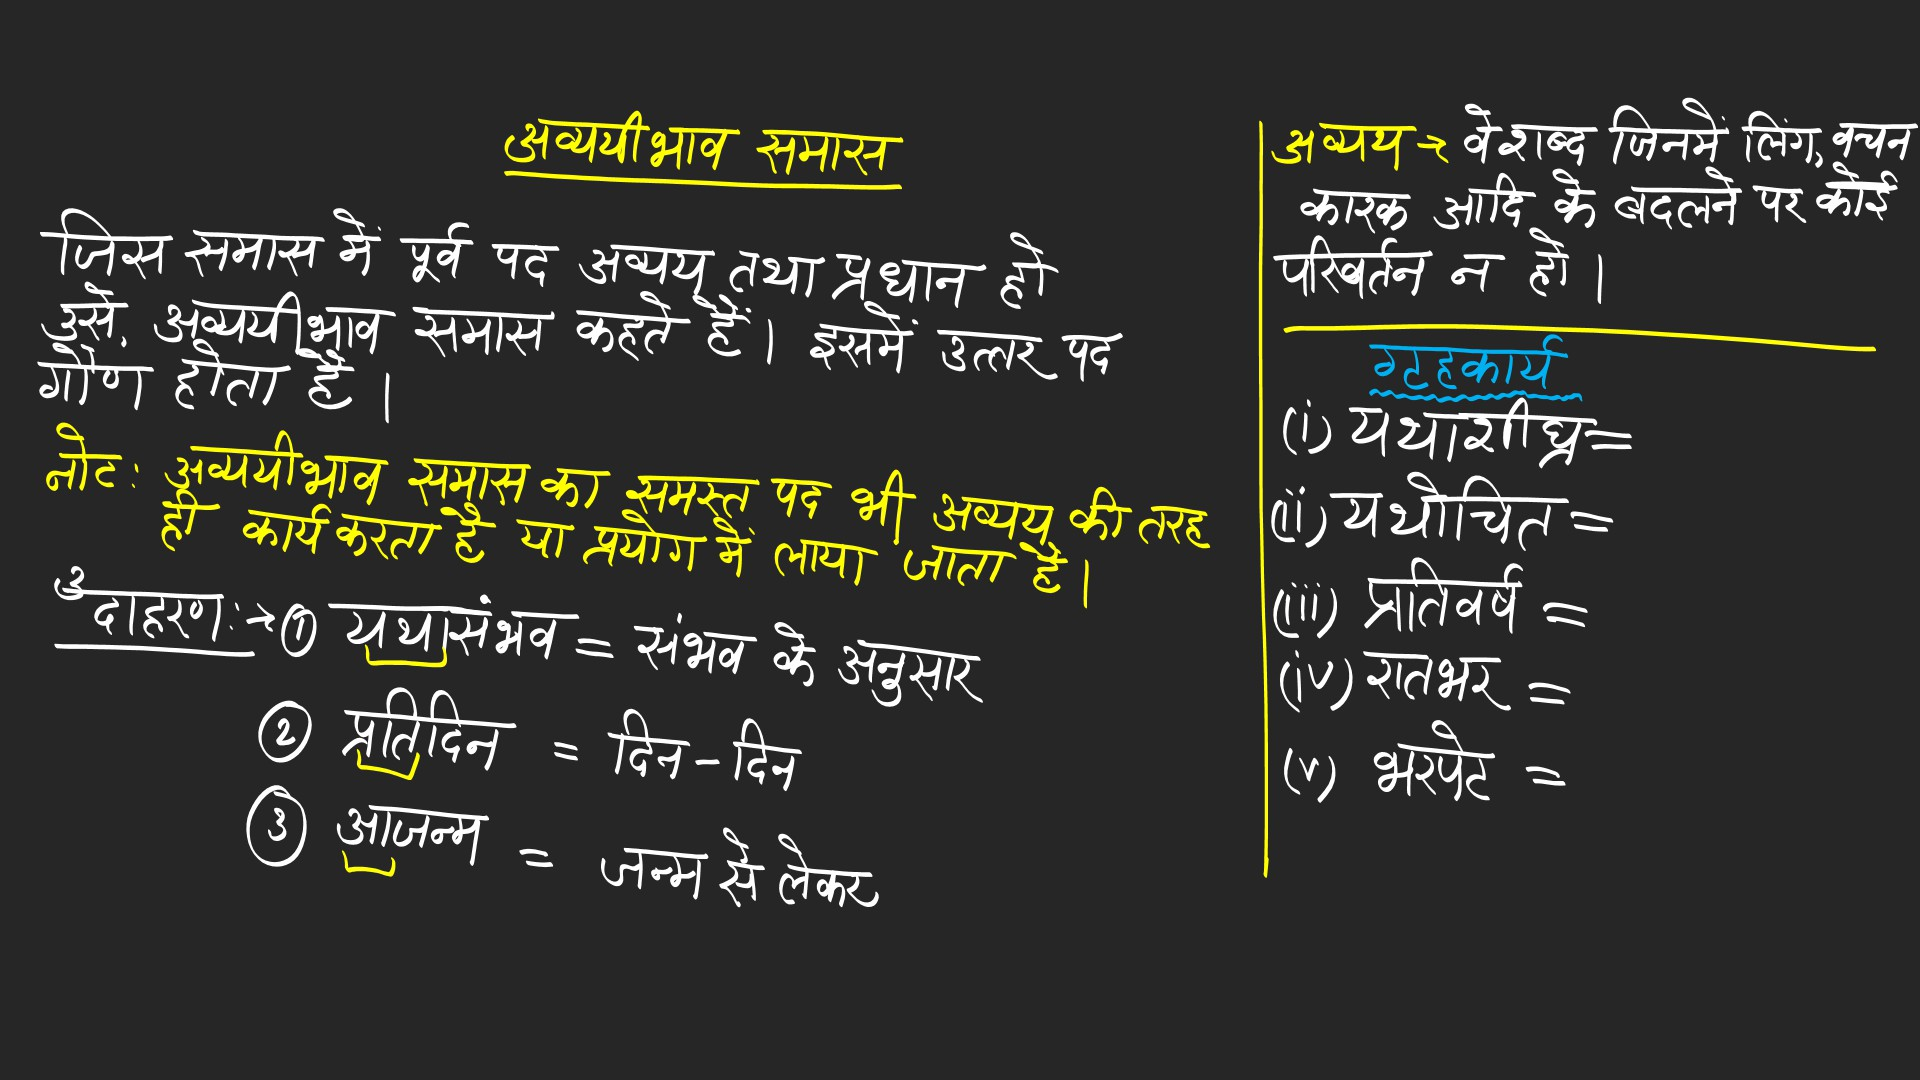 अव्ययीभाव समास
जिस समास में पूर्व पद अव्यय तथा प्रधान हो
उसे, अव्ययीभाव समास कहते हैं। इसमें उत्तर पद
गौण होता है।
नोट: अव्ययीभाव समास का समस्त पद भी अव्यय की तरह
ही कार्य करता है या प्रयोग में लाया जाता है।
उदाहरण:→ ① यथासंभव = संभव के अनुसार
② प्रतिदिन = दिन-दिन
③ आजन्म = जन्म से लेकर
अव्यय → वे शब्द जिनमें लिंग, वचन
कारक आदि के बदलने पर कोई
परिवर्तन न हो।
गृहकार्य
(i) यथाशीघ्र =
(ii) यथोचित =
(iii) प्रतिवर्ष =
(iv) रातभर =
(v) भरपेट =